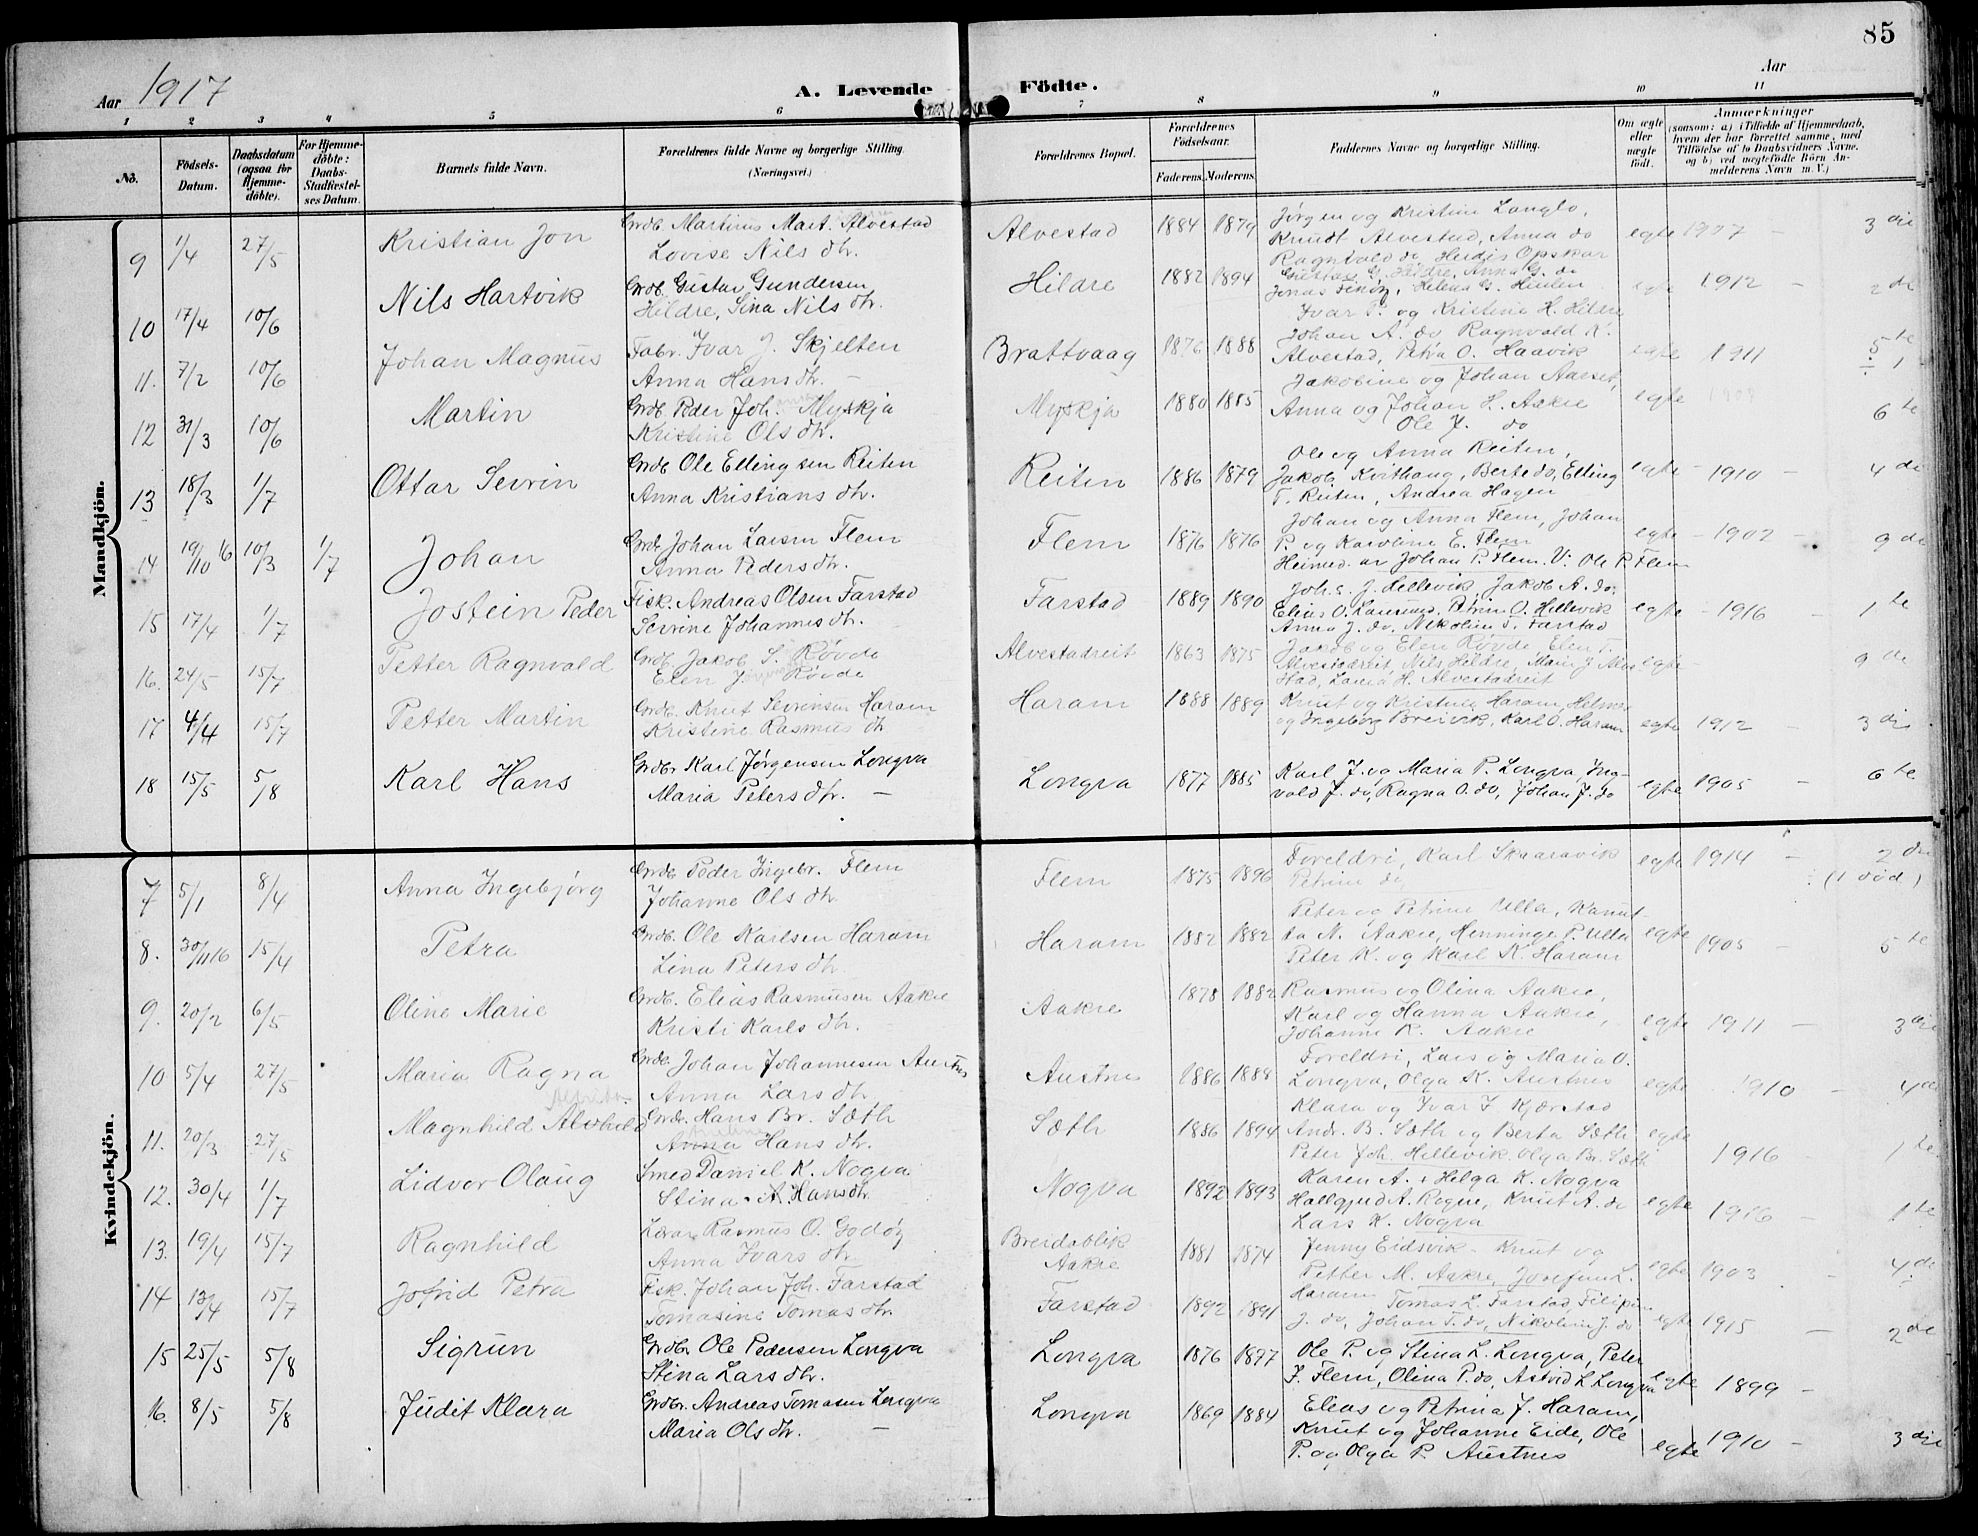 85
Aar 1917
A. Levende Födte.
Aar
1 2 3 4 5 6 7 8 9 10 11
No.
Födsels-Datum.
Daabsdatum (ogsaa for Hjemme-döbte).
For Hjemme-döbte: Daabs-Stadfæstel-ses Datum.
Barnets fulde Navn.
Forældrenes fulde Navne og borgerlige Stilling.
(Næringsvei.)
Forældrenes Bopæl.
Forældrenes Födselsaar.
Faderens. Moderens.
Faddernes Navne og borgerlige Stilling.
Om ægte eller uægte födt.
Anmærkninger
(saasom: a) i Tilfælde af Hjemmedaab, hvem der har forrettet samme, med Tilföielse af to Daabsvidners Navne, og b) ved uægtefödte Börn An-melderens Navn m. V.)
Mandkjön.
9 1/4 27/5 Kristian Jon Grdb. Martinus Mart. Alvestad Alvestad 1884 1879 Jørgen og Kristine Longlo, egte 1907 - 3die
Lovise Nils dtr. Knudt Alvestad, Anna do
Ragnvald do, Heidis Opskar
10 17/4 10/6 Nils Hartvik Grdb. Gustav Gundersen Hildre 1882 1894 Gustav G. Hildre, Anna G. do egte 1912 - 2de
Hildre, Sina Nils dtr. Jonas Finöy, Helena G.
11. 7/2 10/6 Johan Magnus Fabr. Ivar J. Skjelten Brattvaag 1876 1888 Ivar P. og Kristine H. Hildre egte 1911 5te
Anna Hans dtr. - Johan A. do Ragnvald K.
Alvestad, Petra O. Haavik ÷ 1
12 31/3 10/6 Martin Grdb. Peder Joh. Myskja Myskja 1880 1885 Jakobine og Johan Aarset, egte 1908 6te
Kristine Ols dtr. Anna og Johan H. Aakre
Ole J. do
13 18/3 1/7 Ottar Sevrin Grdb. Ole Ellingsen Reiten Reiten 1886 1879 Ole og Anna Reiten, egte - 1910 - 4de
Anna Kristians dtr. Jakob Kvithaug, Berte do, Elling
T. Reiten, Andrea Hagen
14 19/10 16 10/3 1/7 Johan Grdb. Johan Larsen Flem Flem 1876 1876 Johan og Anna Flem, Johan egte - 1902 - 9de
Anna Peders dtr. P. og Karoline E. Flem
Heimed. av Johan P. Flem. V: Ole P. Flem
15 17/4 1/7 Jostein Peder Fisk. Andreas Olsen Farstad Farstad 1889 1890 Johs. J. Hellevik, Jakob A. do, egte - 1916 - 1te
Sevrine Johannes dtr. Elias O. Petrine O. Hellevik
Anna J. do, Nikoline T. Farstad
16. 24/5 15/7 Petter Ragnvald Grdb. Jakob S. Røvde Alvestadreit 1863 1875 Jakob og Elen Røvde, Elen T. egte - 9de
Elen J. Røvde Alvestadreit, Nils Hildre, J. Alve-
stad, H. Alvestadreit
17 4/4 15/7 Petter Martin Grdb. Knut Sevrinsen Haram Haram 1888 1889 Knut og Kristine Haram, Helmer egte 1912 - 3die
Kristine Rasmus dtr og Ingeborg Breivik, Karl O. Haram
18 15/5 5/8 Karl Hans Grdbr Karl Jørgensen Longva Longva 1877 1885 Karl J. og Maria P. Longva, Ing- egte 1905 - 6te
Maria Peters dtr. - vald J. do, Ragna O. do, Johan J. do
Kvindekjön.
7 5/1 8/4 Anna Ingebjörg Grdb. Peder Ingebr. Flem Flem 1875 1896 Foreldri, Karl Skaaravik egte 1914 - 2den
Johanne Ols dtr Petrine do, (1 død)
8. 30/11 16 15/4 Petra Grdb. Ole Karlsen Haram Haram 1882 1882 Peter og Petrine Ulla, Kanut- egte 1905 - 5te
Lina Peters dtr. ta N. Aakre, Henninge P. Ulla
Peter K. og Karl K. Haram
9. 20/2 6/5 Oline Marie Grdb. Elias Rasmusen Aakre Aakre 1878 1882 Rasmus og Olina Aakre, egte 1911 - 3die
Kristi Karls dtr. Karl og Hanna Aakre,
Johanne K. Aakre
10 5/4 27/5 Maria Ragna Grdb. Johan Johannesen Austnes Austnes 1886 1888 Foreldri, Lars og Maria O. egte 1910 - 4de
Anna Lars dtr Longva, Olga K. Austnes
11. 20/3 27/5 Magnhild Alvhild Grdb. Hans Br. Sæth Sæth 1886 1894 Klara og Ivar I. Kjærstad egte 1916 - 1te
Anna Hans dtr. Andr. B. Sæth og Berta Sæth
Peter Joh. Hellevik, Olga Br. Sæth
12. 30/4 1/7 Lidvor Olaug Smed Daniel K. Nogva Nogva 1892 1893 Karen A. + Helga K. Nogva egte 1916 - 1te
Stina A. Hansdtr Hallgjerd A. Rogne, Knut A. do
Lars K. Nogva
13. 19/4 15/7 Ragnhild Lærar Rasmus O. Godöy Breidablik 1881 1874 Jenny Eidsvik - Knut og egte 1903 - 4de
Anna Ivars dtr. Aakre Petter M. Aakre, Josefine L.
Haram
14 13/4 15/7 Jofrid Petra Fisk. Johan Joh. Farstad Farstad 1892 1891 Tomas L. Farstad, Filipine egte 1915 - 2de
Tomasine Tomas dtr. J. do, Johan T. do, Nikoline J. do
15 25/5 5/8 Sigrun Grdbr Ole Pedersen Longva Longva 1876 1877 Ole P. og Stina L. Longva, Peter egte 1899 -
Stina Lars dtr. J. Flem, Olina P. do, Astrid L Longva
16. 8/5 5/8 Judit Klara Grdbr. Andreas Tomasen Longva Longva 1869 1884 Elias og Petrina J. Haram, egte 1910 - 3die
Maria Ols dtr. - Knut og Johanne Eide, Ole
P. og Olga P. Austnes